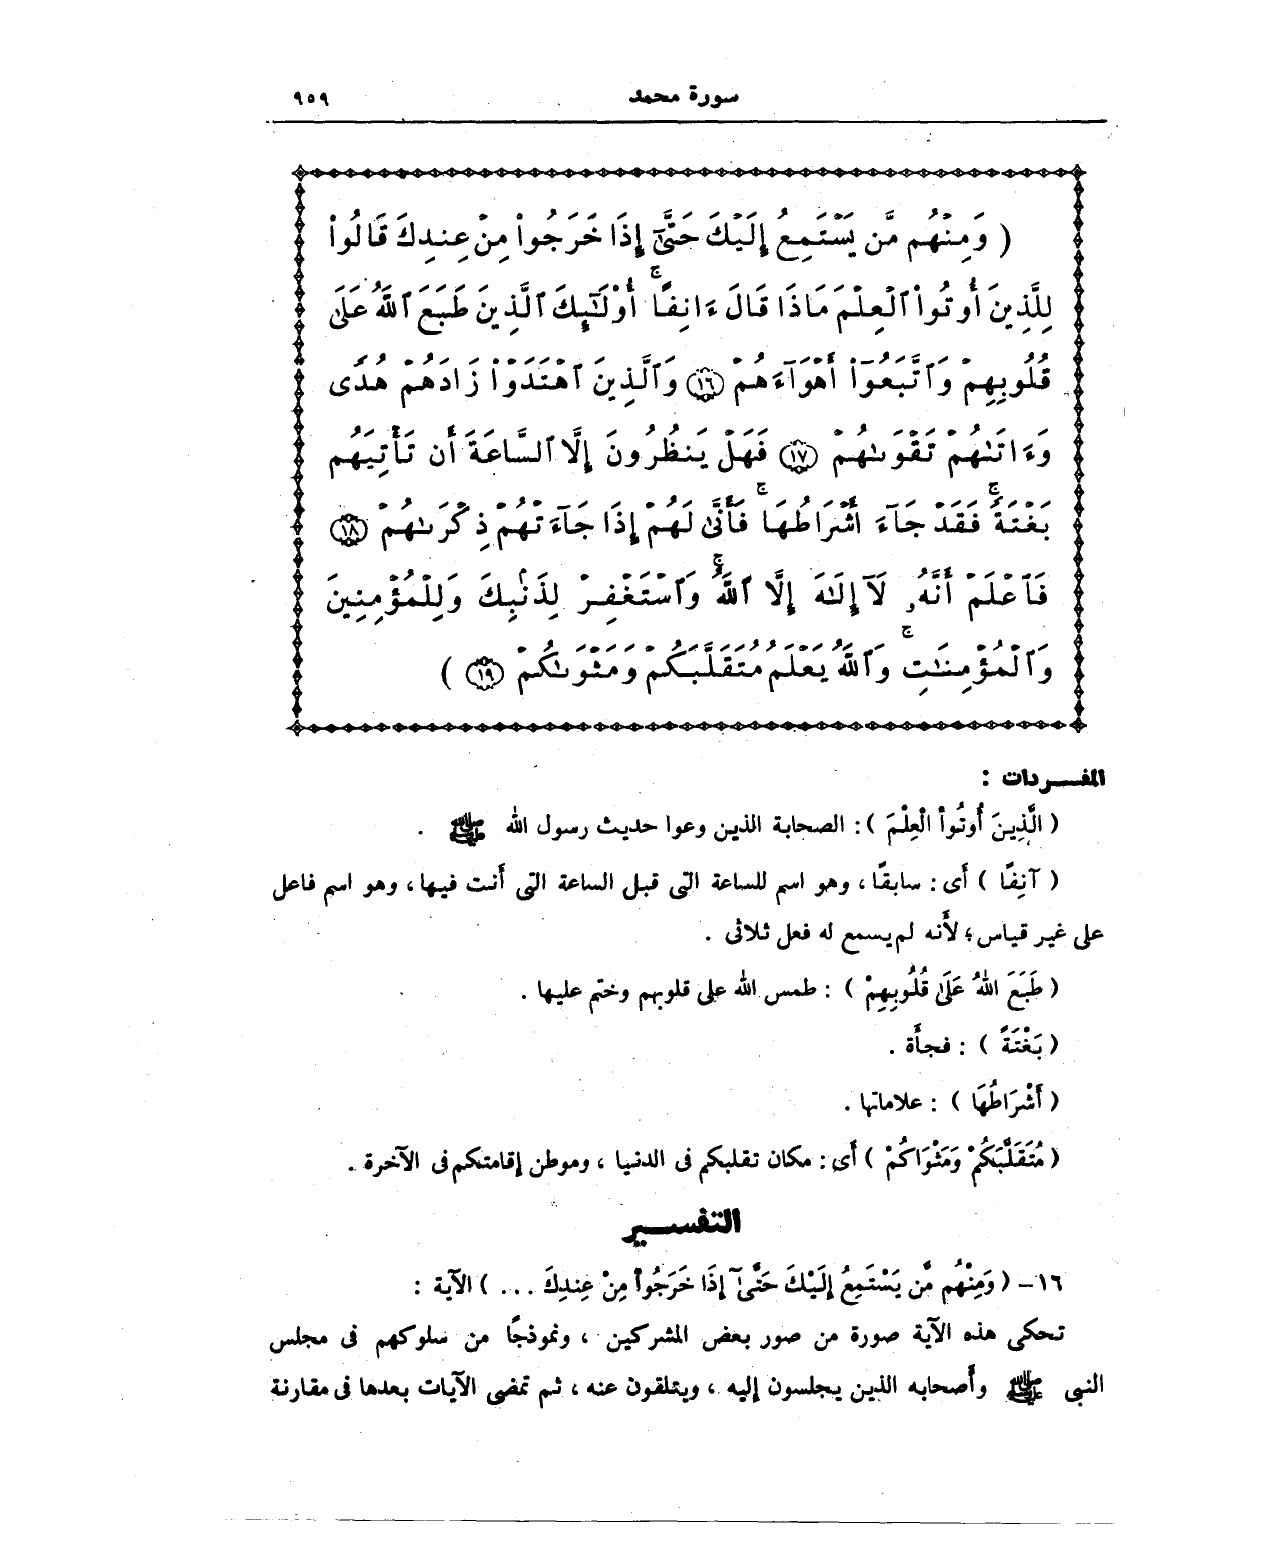 سورة محمد ٩٥٩
( وَمِنْهُم مَّن يَسْتَمِعُ إِلَيْكَ حَتَّىٰٓ إِذَا خَرَجُوا۟ مِنْ عِندِكَ قَالُوا۟
لِلَّذِينَ أُوتُوا۟ ٱلْعِلْمَ مَاذَا قَالَ ءَانِفًا ۚ أُو۟لَـٰٓئِكَ ٱلَّذِينَ طَبَعَ ٱللَّهُ عَلَىٰ
قُلُوبِهِمْ وَٱتَّبَعُوٓا۟ أَهْوَآءَهُمْ ١٦ وَٱلَّذِينَ ٱهْتَدَوْا۟ زَادَهُمْ هُدًى
وَءَاتَىٰهُمْ تَقْوَىٰهُمْ ١٧ فَهَلْ يَنظُرُونَ إِلَّا ٱلسَّاعَةَ أَن تَأْتِيَهُم
بَغْتَةً ۖ فَقَدْ جَآءَ أَشْرَاطُهَا ۚ فَأَنَّىٰ لَهُمْ إِذَا جَآءَتْهُمْ ذِكْرَىٰهُمْ ١٨
فَٱعْلَمْ أَنَّهُۥ لَآ إِلَـٰهَ إِلَّا ٱللَّهُ وَٱسْتَغْفِرْ لِذَنۢبِكَ وَلِلْمُؤْمِنِينَ
وَٱلْمُؤْمِنَـٰتِ ۗ وَٱللَّهُ يَعْلَمُ مُتَقَلَّبَكُمْ وَمَثْوَىٰكُمْ ١٩ )
المفـــردات :
( الَّذِينَ أُوتُوا۟ الْعِلْمَ ) : الصحابة الذين وعوا حديث رسول الله ﷺ .
( آنِفًا ) أى : سابقًا ، وهو اسم للساعة التى قبل الساعة التى أنت فيها ، وهو اسم فاعل
على غير قياس ؛ لأنه لم يسمع له فعل ثلاثى .
( طَبَعَ اللهُ عَلَىٰ قُلُوبِهِمْ ) : طمس الله على قلوبهم وختم عليها .
( بَغْتَةً ) : فجأة .
( أَشْرَاطُهَا ) : علاماتها .
( مُتَقَلَّبَكُمْ وَمَثْوَاكُمْ ) أى : مكان تقلبكم فى الدنيا ، وموطن إقامتكم فى الآخرة .
التفســـير
١٦ – ( وَمِنْهُم مَّن يَسْتَمِعُ إِلَيْكَ حَتَّىٰٓ إِذَا خَرَجُوا۟ مِنْ عِندِكَ ... ) الآية :
تحكى هذه الآية صورة من صور بعض المشركين ، ونموذجًا من سلوكهم فى مجلس
النبى ﷺ وأصحابه الذين يجلسون إليه ، ويتلقون عنه ، ثم تمضى الآيات بعدها فى مقارنة